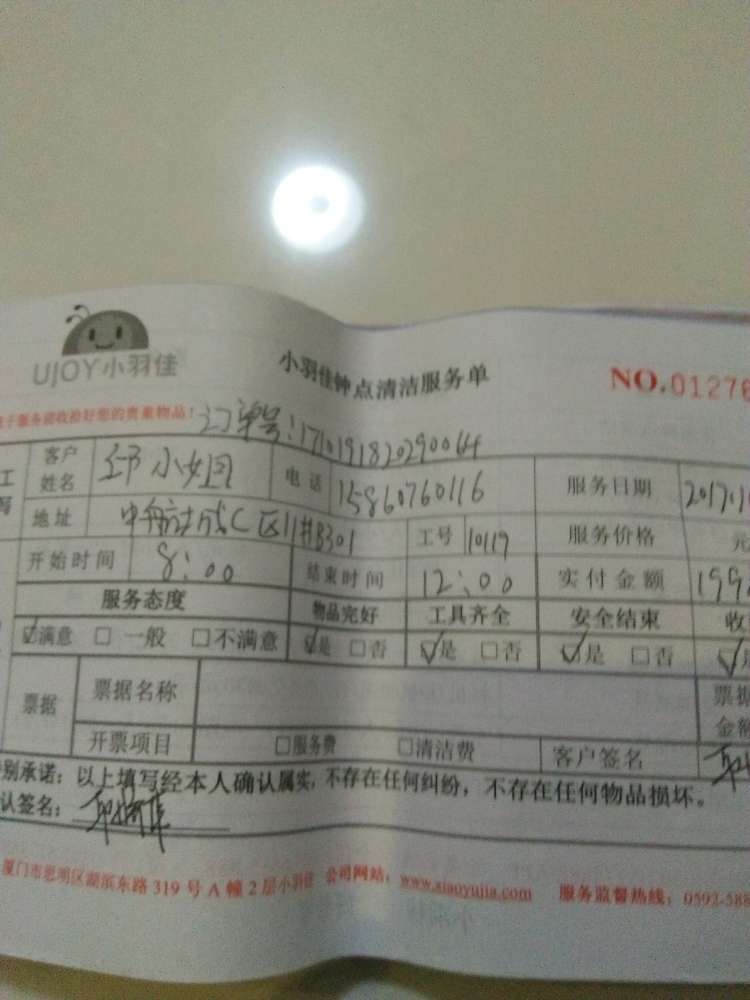 UJOY小羽佳
小羽佳钟点清洁服务单
NO.01276
子服务前收拾好您的贵重物品!
订单号:1710191820290064
客户姓名 邱小姐 电话 15860760116 服务日期 2017.1
地址 C区11#B301 工号 10119 服务价格 元
开始时间 8:00 结束时间 12:00 实付金额 199
服务态度 物品完好 工具齐全 安全结束 收
☑满意 □ 一般 □不满意 ☑是 □否 ☑是 □否 ☑是 □否
票据 票据名称 票据金额
开票项目 □服务费 □清洁费 客户签名
别承诺:以上填写经本人确认属实,不存在任何纠纷,不存在任何物品损坏。
认签名:
厦门市思明区湖滨东路 319 号 A 幢 2 层小羽佳 公司网站:www.xiaoyujia.com 服务监督热线:0592-588